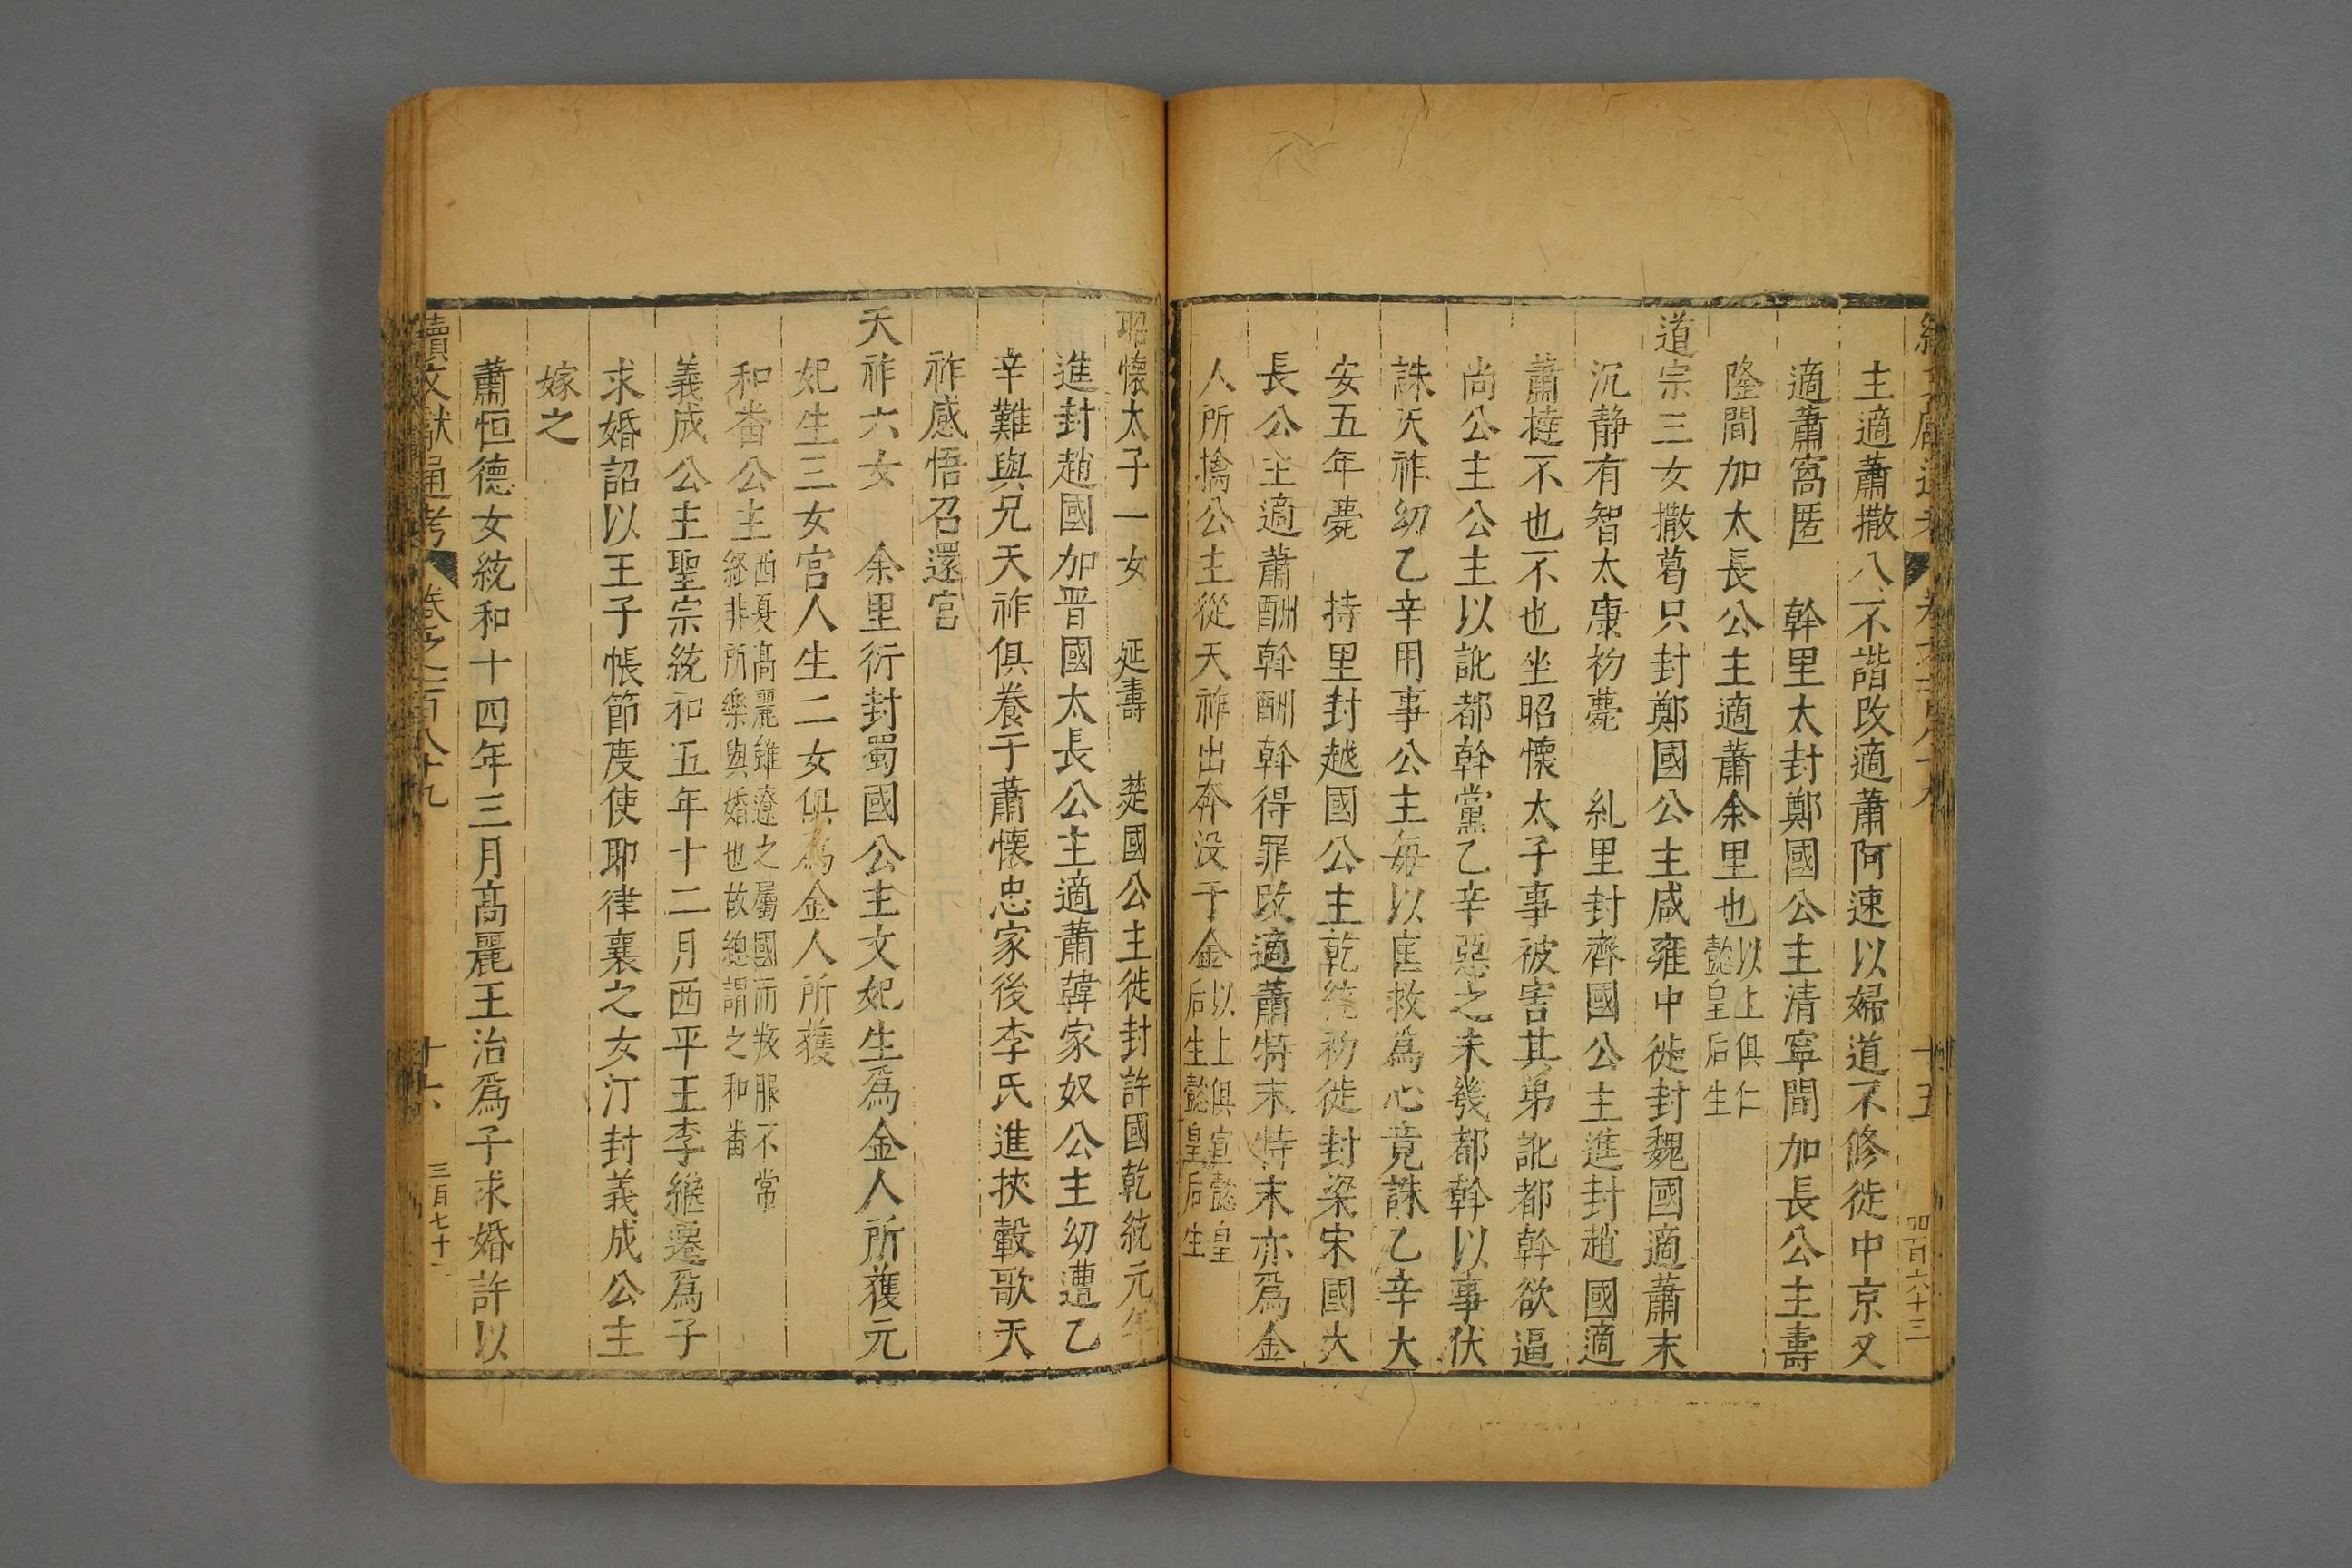 主適蕭撒八不諧改適蕭阿速以婦道不修徙中京又
適蕭窩匿　斡里太封鄭國公主清寧間加長公主壽
隆間加太長公主適蕭余里也以上俱仁懿皇后生
道宗三女撒葛只封鄭國公主咸雍中徙封魏國適蕭末
沉静有智太康初薨　糺里封齊國公主進封趙國適
蕭撻不也不也坐昭懷太子事被害其弟訛都斡欲逼
尚公主公主以訛都斡黨乙辛惡之未幾都斡以事伏
誅天祚幼乙辛用事公主每以匡救爲心竟誅乙辛大
安五年薨　持里封越國公主乾統初徙封梁宋國大
長公主適蕭酬斡酬斡得罪改適蕭特末特末亦爲金
人所擒公主從天祚出奔没于金以上俱宣懿皇后生懿皇后生
昭懷太子一女　延壽　楚國公主徙封許國乾統元年
進封趙國加晋國太長公主適蕭韓家奴公主幼遭乙
辛難與兄天祚俱養于蕭懷忠家後李氏進挾轂歌天
祚感悟召還宮
天祚六女　余里衍封蜀國公主文妃生爲金人所獲元
妃生三女宮人生二女俱爲金人所獲
和畨公主西夏髙麗雖遼之屬國而叛服不常經非所樂與婚也故總謂之和畨
義成公主聖宗統和五年十二月西平王李繼遷爲子
求婚詔以王子帳節度使耶律襄之女汀封義成公主
嫁之
蕭恒德女統和十四年三月髙麗王治爲子求婚許以
續文獻通考　卷之二百八十九　十六　三百七十一